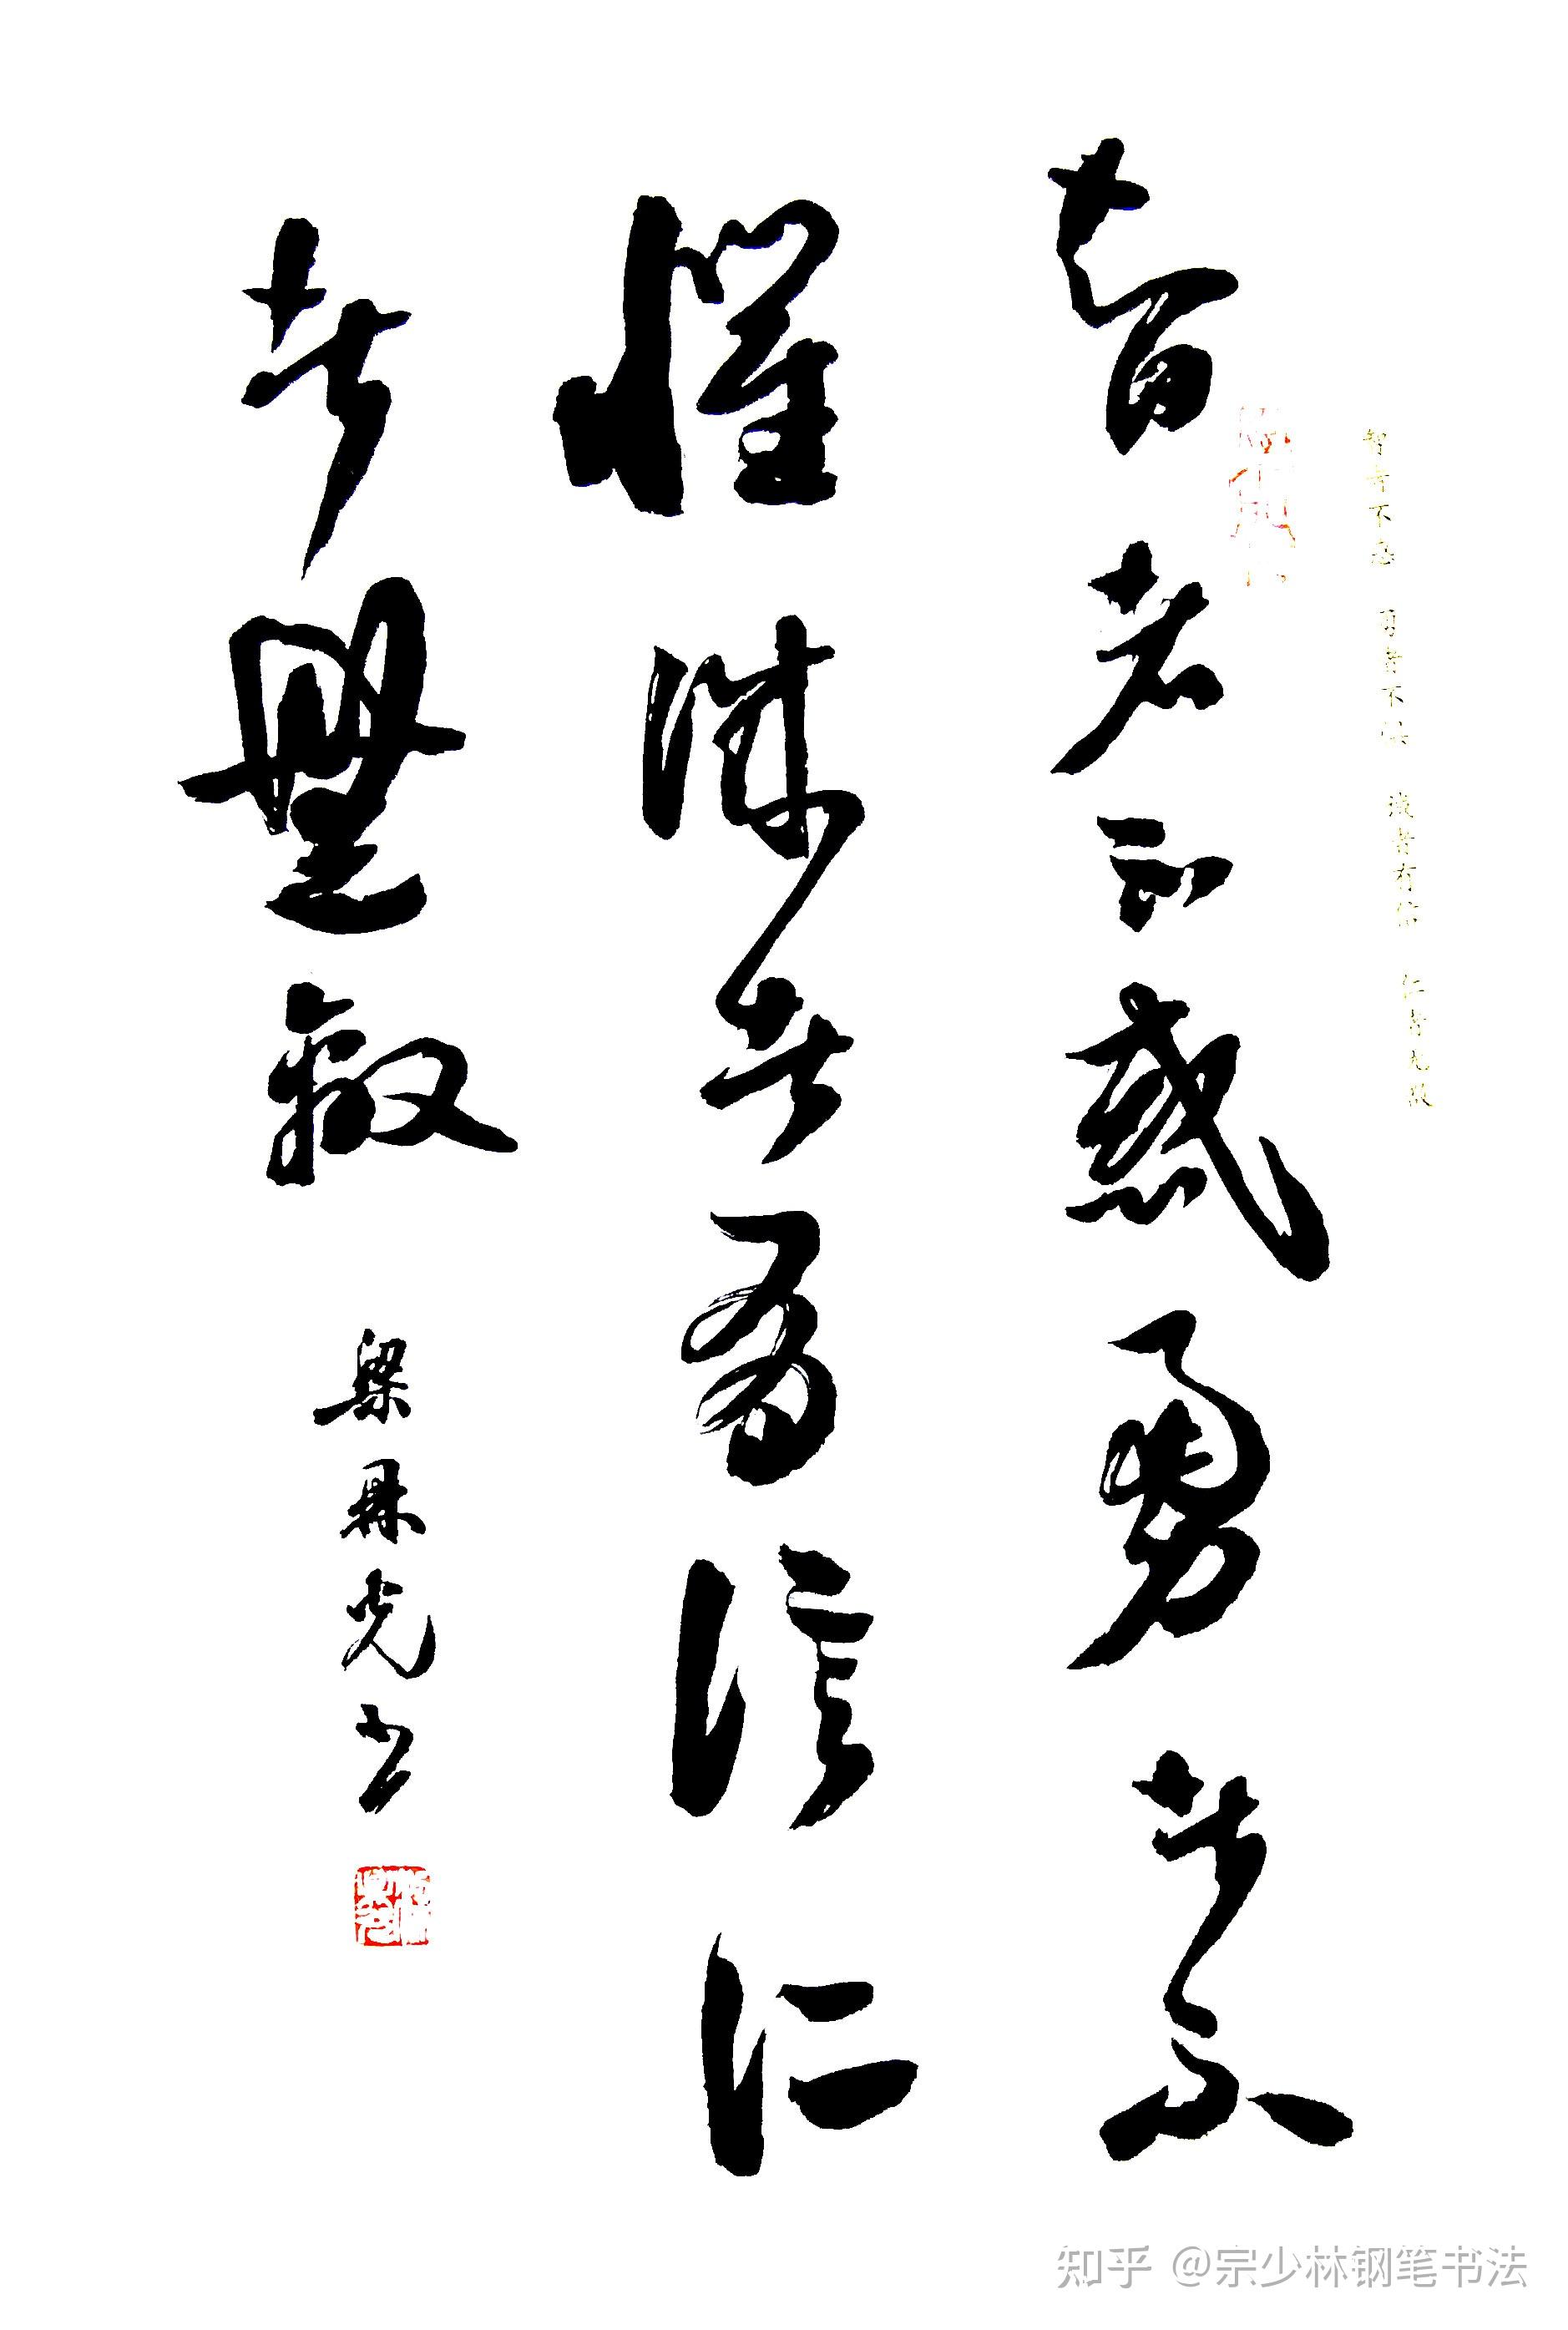 智者不惑勇者不
懼诚者有信仁
者無敵
梁鼎光书
智者不惑 勇者不惧 诚者有信 仁者无敌
知乎 @宗少林钢笔书法